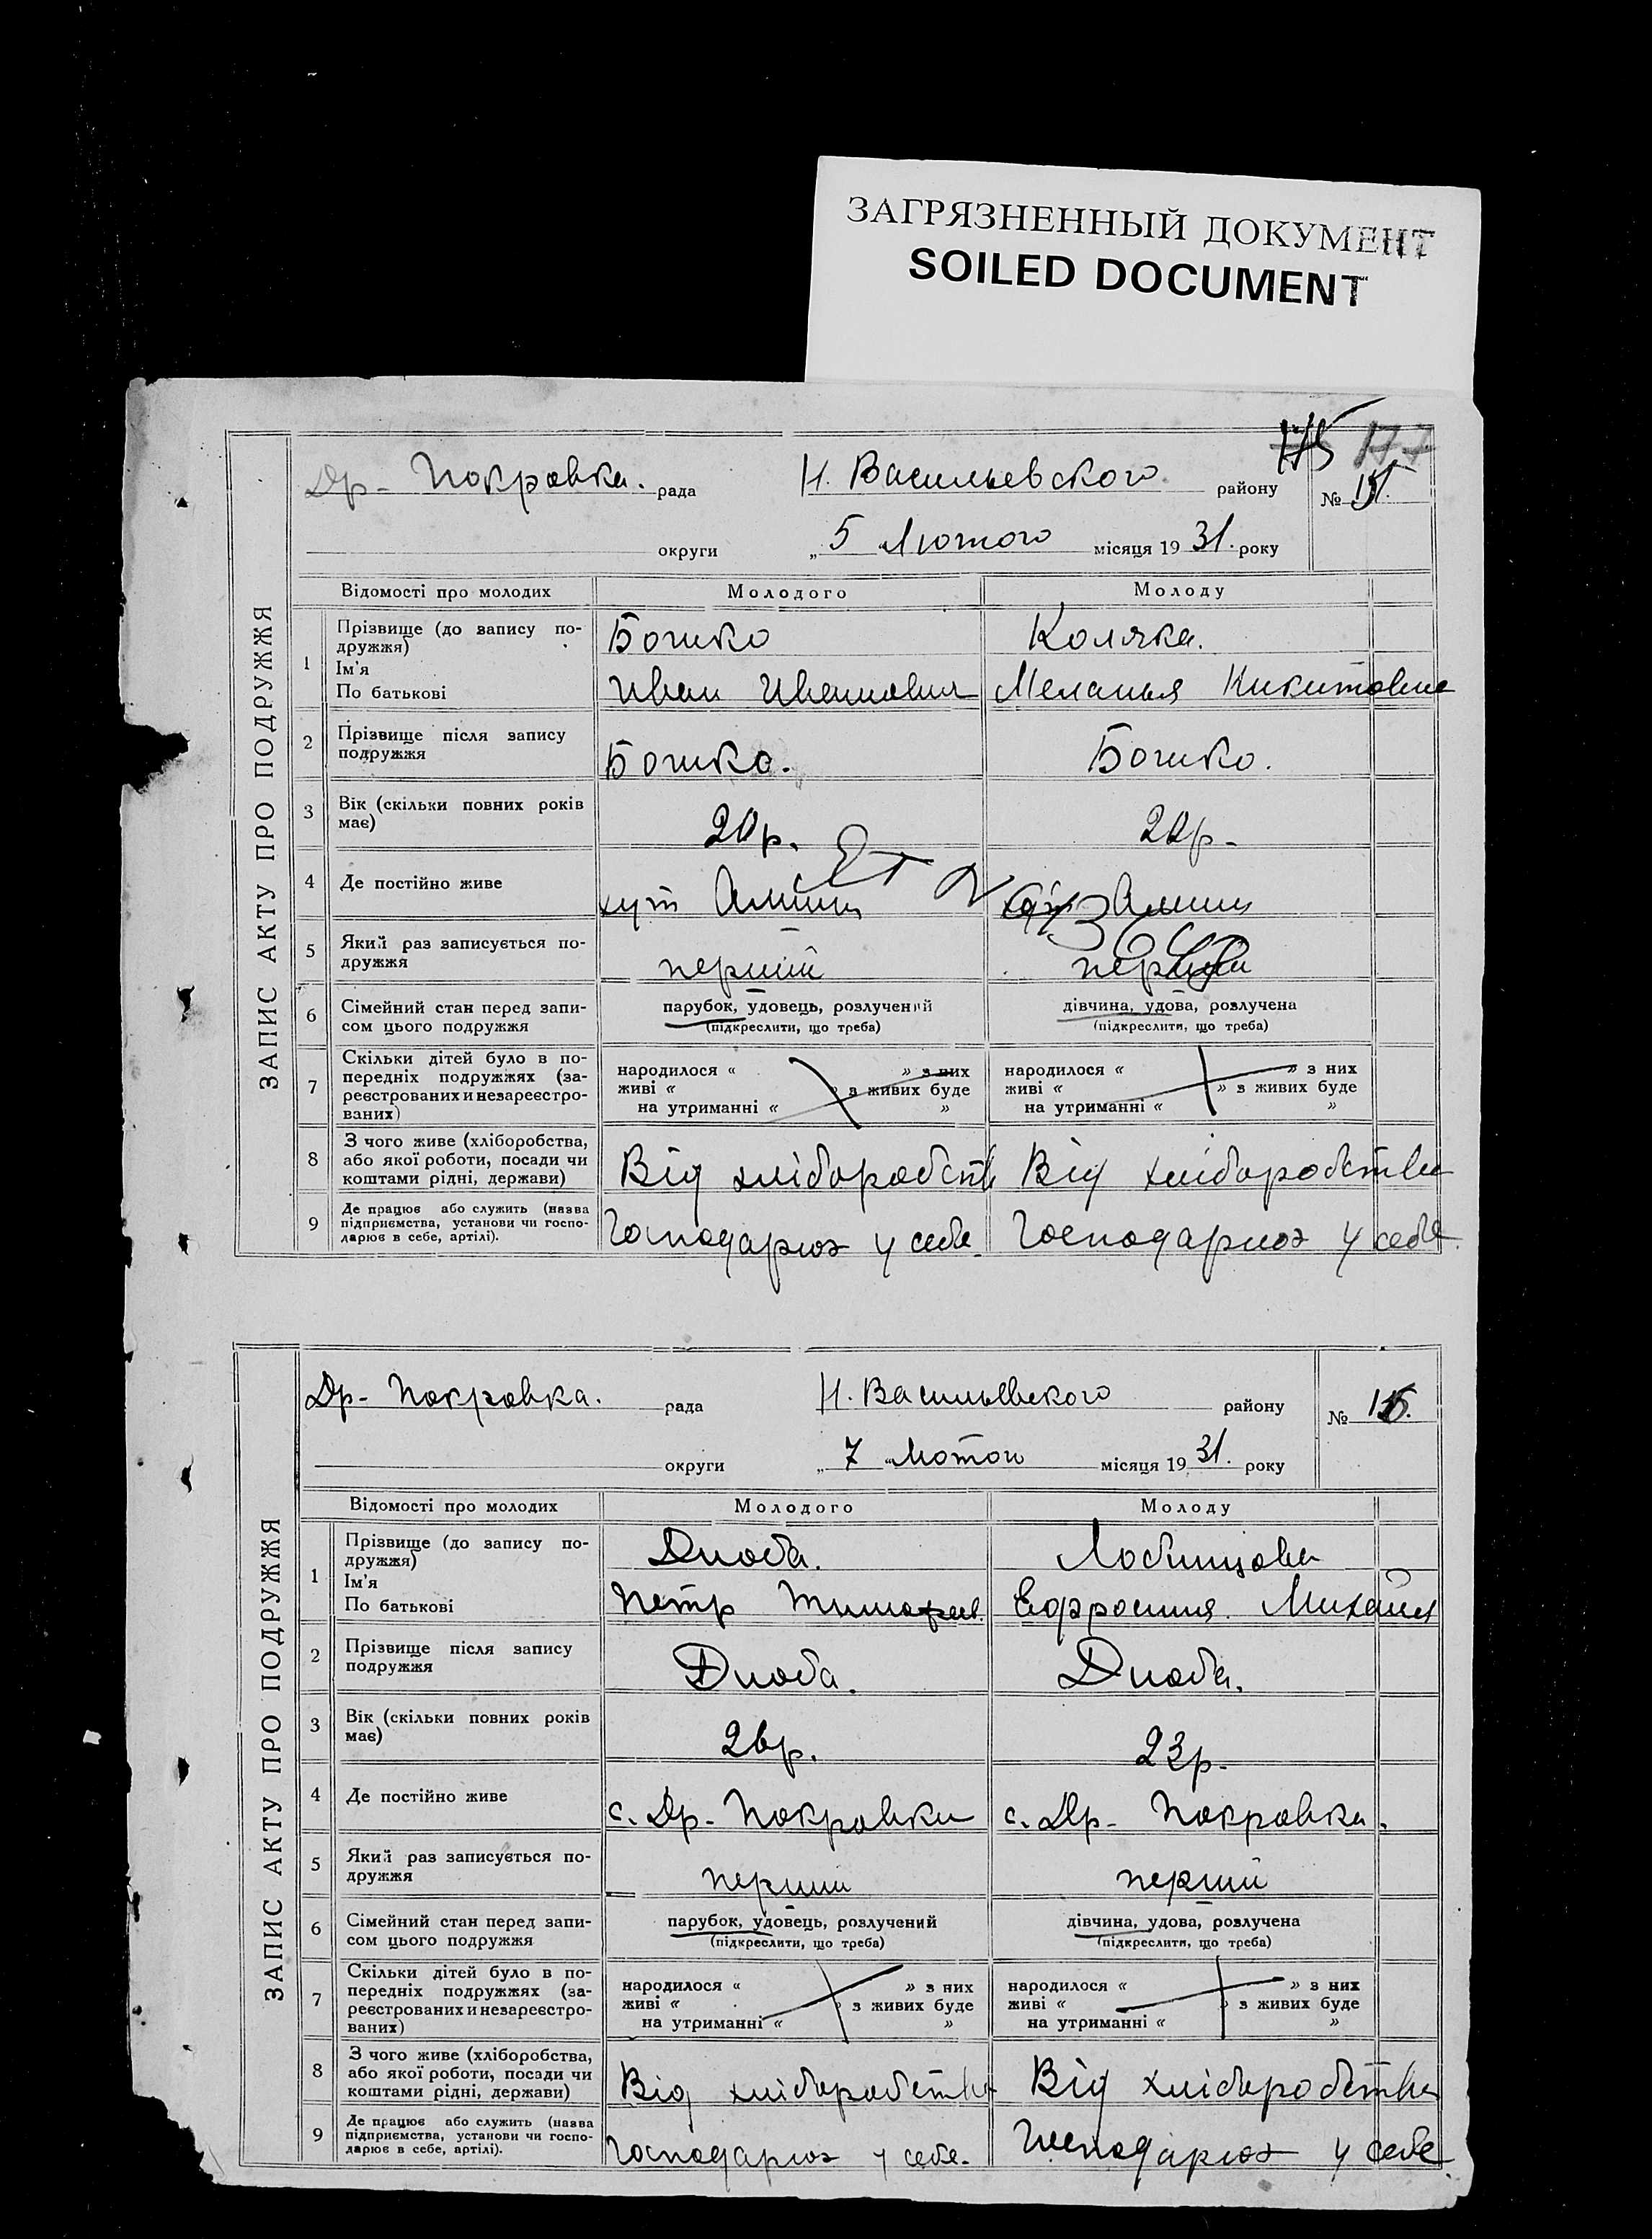 ЗАГРЯЗНЕННЫЙ ДОКУМЕНТ
SOILED DOCUMENT
177
ЗАПИС АКТУ ПРО ПОДРУЖЖЯ
Др- Покровка. рада Н. Васильевского району №
округи „ 5 Лютого місяця 1931. року
Відомості про молодих Молодого Молоду
1 Прізвище (до запису по-
дружжя)
Ім'я
По батькові
Божко Коляка.
Иван Иванович Меланья Никитовна
2 Прізвище після запису
подружжя
Божко. Божко.
3 Вік (скільки повних років
має)
20р. 20р-
4 Де постійно живе
хут
5 Який раз записується по-
дружжя
перший перший
6 Сімейний стан перед запи-
сом цього подружжя
парубок, удовець, розлучений дівчина, удова, розлучена
(підкреслити, що треба) (підкреслити, що треба)
7 Скільки дітей було в по-
передніх подружжях (за-
реєстрованих и незареєстро-
ваних)
народилося « » з них народилося « » з них
живі « » з живих буде живі « » з живих буде
на утриманні « » на утриманні « »
8 З чого живе (хліборобства,
або якої роботи, посади чи
коштами рідні, держави)
Від хліборобств Від хліборобства
9 Де працює або служить (назва
підприємства, установи чи госпо-
дарює в себе, артілі).
Господарює у себе. Господарює у себе.
ЗАПИС АКТУ ПРО ПОДРУЖЖЯ
Др- Покровка. рада Н. Васильевского району №
округи „ 7 Лютого місяця 1931. року
Відомості про молодих Молодого Молоду
1 Прізвище (до запису по-
дружжя)
Ім'я
По батькові
Дзюба. Лобинцова
Петр Тимофеев. Ефросиния. Михайл
2 Прізвище після запису
подружжя
Дзюба. Дзюба.
3 Вік (скільки повних років
має)
26р. 23р-
4 Де постійно живе
с. Др- Покровки с. Др- Покровка.
5 Який раз записується по-
дружжя
перший перший
6 Сімейний стан перед запи-
сом цього подружжя
парубок, удовець, розлучений дівчина, удова, розлучена
(підкреслити, що треба) (підкреслити, що треба)
7 Скільки дітей було в по-
передніх подружжях (за-
реєстрованих и незареєстро-
ваних)
народилося « » з них народилося « » з них
живі « » з живих буде живі « » з живих буде
на утриманні « » на утриманні « »
8 З чого живе (хліборобства,
або якої роботи, посади чи
коштами рідні, держави)
Від хліборобства Від хліборобства
9 Де працює або служить (назва
підприємства, установи чи госпо-
дарює в себе, артілі).
Господарює у себе. Господарює у себе.